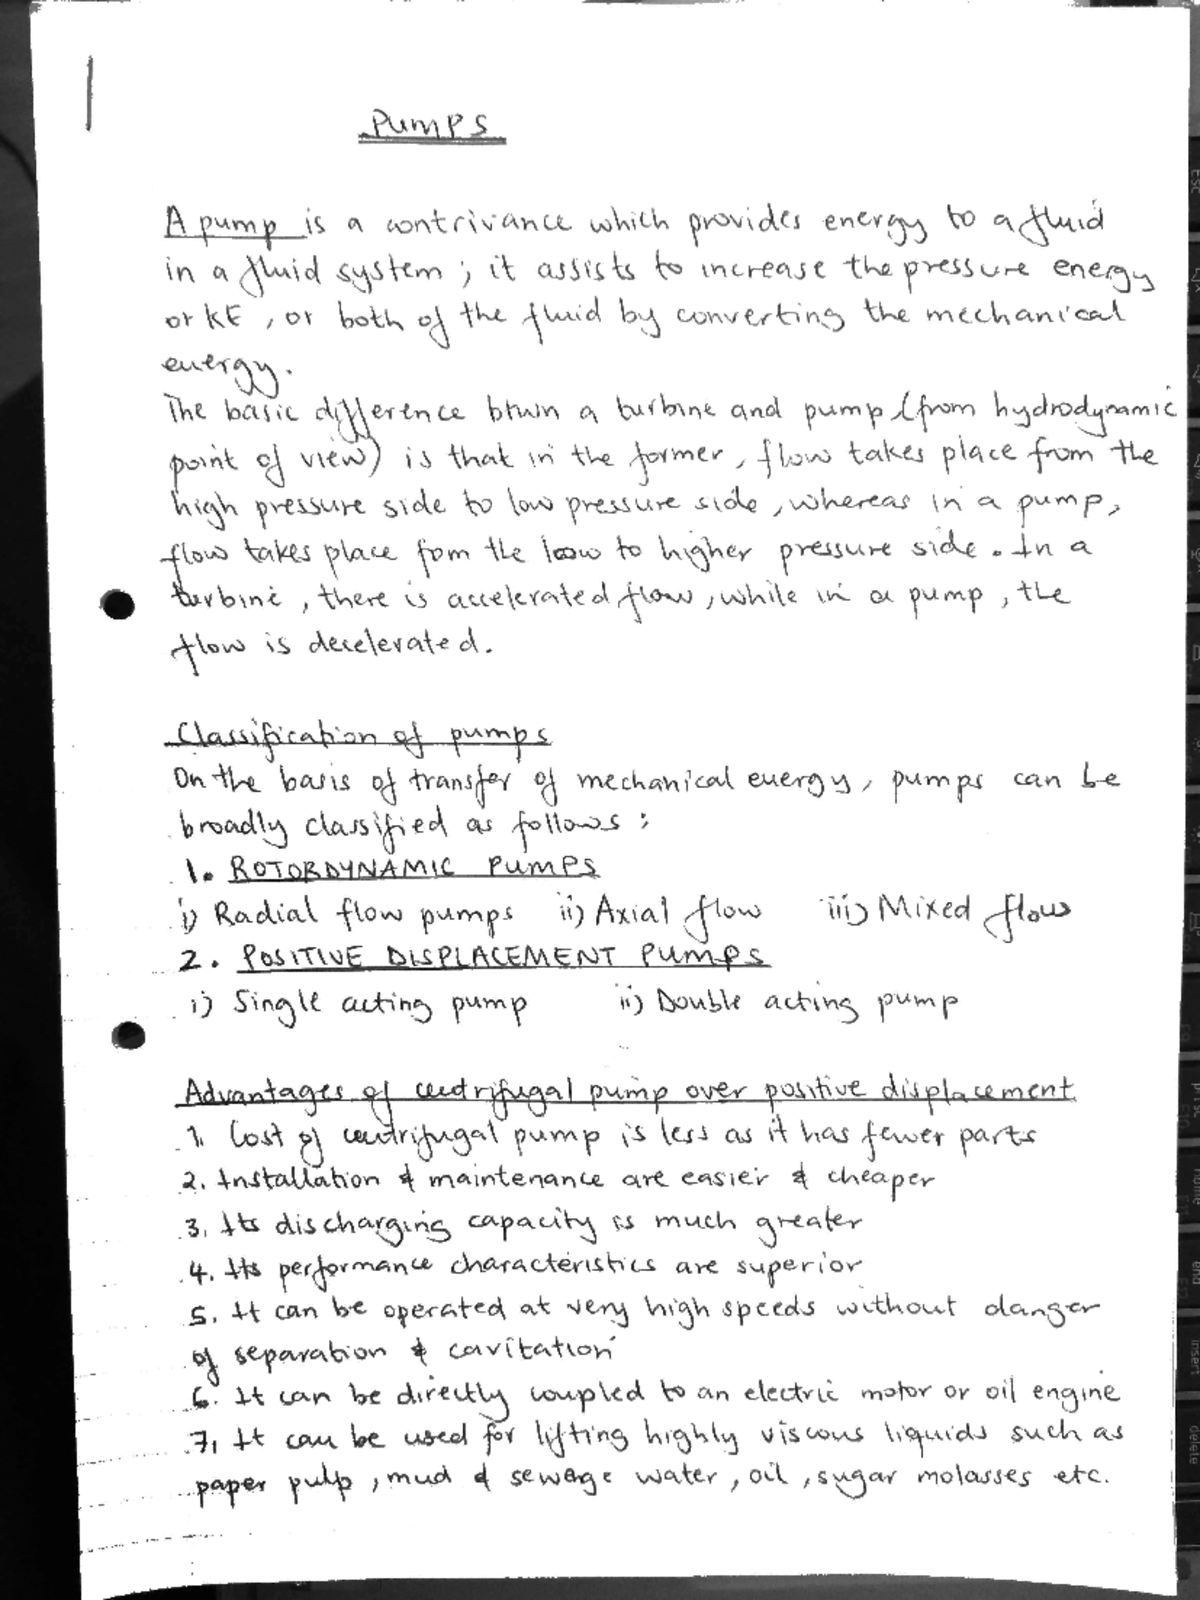 Pumps
A pump is a contrivance which provides energy to a fluid
in a fluid system ; it assists to increase the pressure energy
or KE , or both of the fluid by converting the mechanical
energy.
The basic difference btwn a turbine and pump (from hydrodynamic
point of view) is that in the former, flow takes place from the
high pressure side to low pressure side, whereas in a pump,
flow takes place fom the loow to higher pressure side. In a
turbine, there is accelerated flow, while in a pump, the
flow is decelerated.
Classification of pumps
On the basis of transfer of mechanical energy, pumps can be
broadly classified as follows :
1. ROTORDYNAMIC PUMPS
i) Radial flow pumps ii) Axial flow iii) Mixed flow
2. POSITIVE DISPLACEMENT PUMPS
i) Single acting pump ii) Double acting pump
Advantages of centrifugal pump over positive displacement
1. Cost of centrifugal pump is less as it has fewer parts
2. Installation & maintenance are easier & cheaper
3. Its discharging capacity is much greater
4. Its performance characteristics are superior
5. It can be operated at very high speeds without danger
of separation & cavitation
6. It can be directly coupled to an electric motor or oil engine
7. It can be used for lifting highly viscous liquids such as
paper pulp, mud & sewage water, oil, sugar molasses etc.
esc
insert
delete